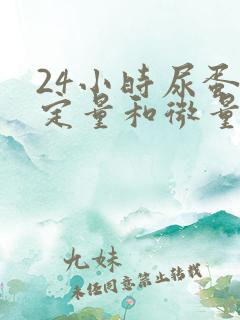 24小时尿蛋
定量和微量
九妹
未经同意禁止转载